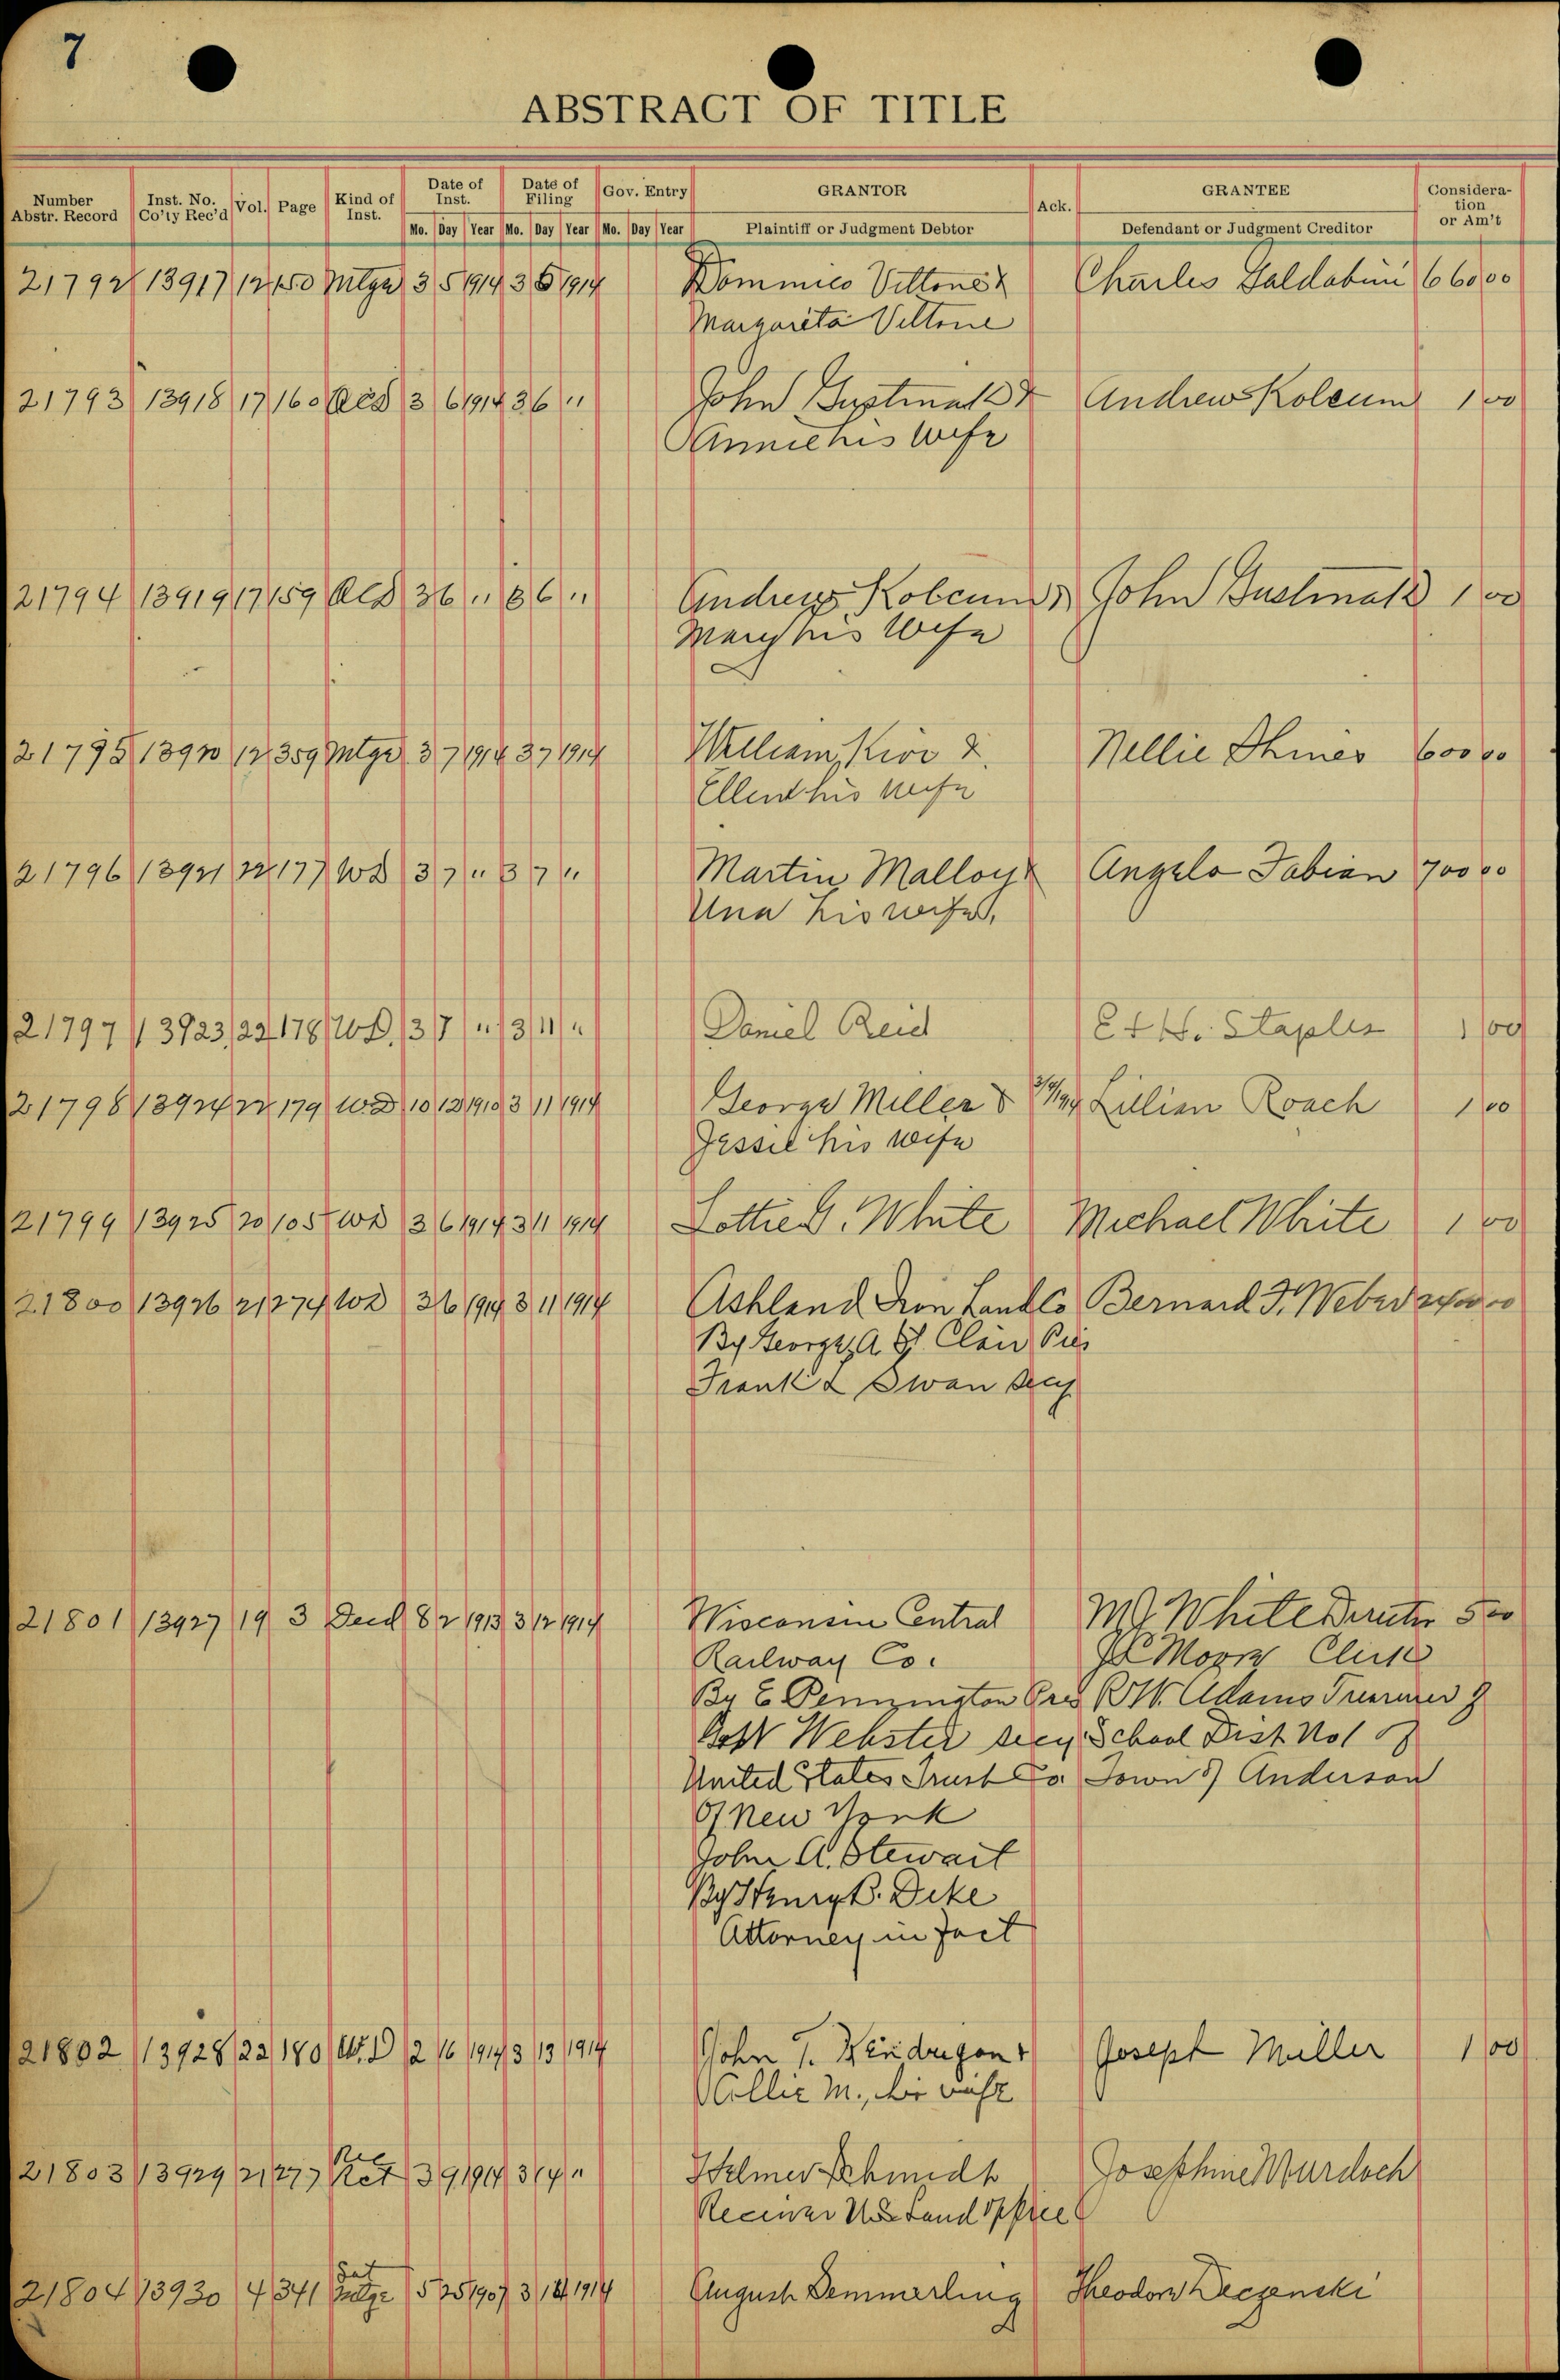 7
ABSTRACT OF TITLE
Number Abstr. Record Inst. No. Co'ty Rec'd Vol. Page Kind of Inst. Date of Inst. Date of Filing Gov. Entry GRANTOR Ack. GRANTEE Consideration or Am't
Mo. Day Year Mo. Day Year Mo. Day Year Plaintiff or Judgment Debtor Defendant or Judgment Creditor
21792 13917 12 450 Mtge 3 5 1914 3 5 1914 Dominico Vittone & Charles Galdabini 660 00
Margareta Vittone
21793 13918 17 160 QCD 3 6 1914 3 6 " John Gustmak & Andrew Koleum 1 00
Annie his wife
21794 13919 17 159 QCD 3 6 " 3 6 " Andrew Koleum & John Gustmak 1 00
Mary his Wife
21795 13920 12 359 Mtge 3 7 1914 3 7 1914 William Kivi & Nellie 600 00
Ellen his wife
21796 13921 22 177 WD 3 7 " 3 7 " Martin Malloy & Angelo Fabian 700 00
Una his wife,
21797 13923 22 178 WD. 3 7 " 3 11 " Daniel Reid E. H. Staples 1 00
21798 13924 22 179 WD 10 12 1910 3 11 1914 George Miller & Lillian Roach 1 00
Jessie his wife
21799 13925 20 105 WD 3 6 1914 3 11 1914 Lottie G. White Michael White 1 00
21800 13926 21 274 WD 3 6 1914 3 11 1914 Ashland Iron Land Co Bernard F. Weber
By George A St. Clair Pres
Frank L Swan Secy
21801 13927 19 3 Deed 8 2 1913 3 12 1914 Wisconsin Central M J White Director 5 00
Railway Co. Clerk
By E Pennington Pres R W. Adams Treasurer of
Webster secy School Dist No 1 of
United States Trust Co. Town of Anderson
Of New York
John A. Stewart
By Henry B. Deke
Attorney in fact
21802 13928 22 180 W.D 2 16 1914 3 13 1914 John T. & Joseph Miller 1 00
M., his wife
21803 13929 21 277 Rec Rct 3 9 1914 3 14 " Helmer Schmidt Josephine Murdoch
Receiver US Land Office
21804 13930 4 341 Sat Mtge 5 25 1907 3 14 1914 August Demmerling Theodore